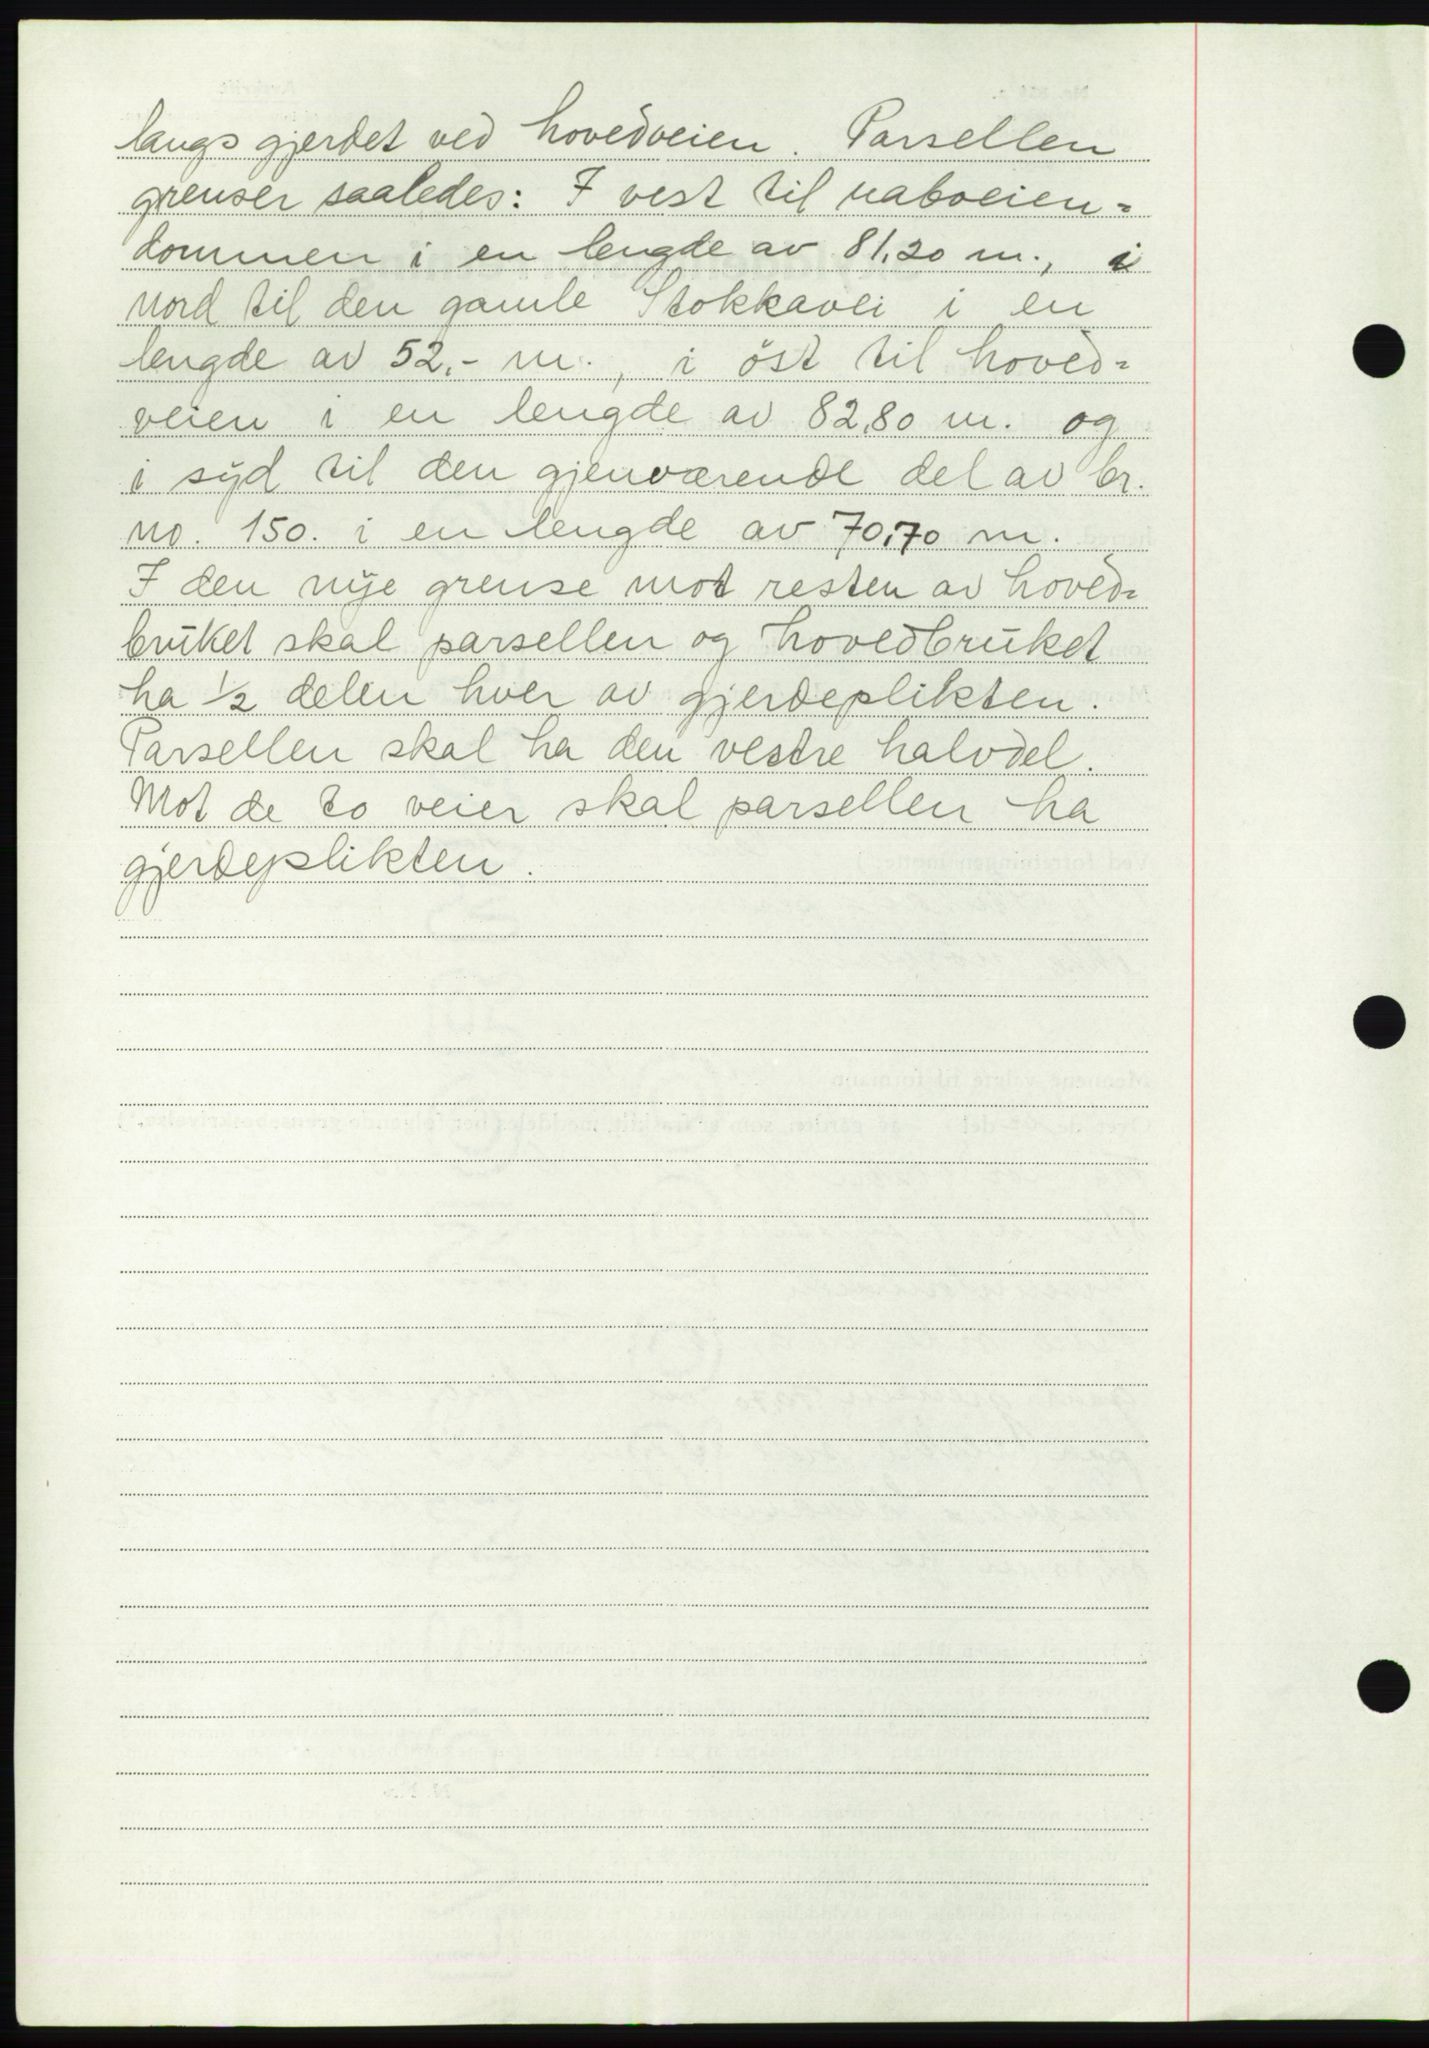 langs gjerdet ved hovedveien. Parsellen
grenser saaledes: I vest til naboeien=
dommen i en lengde av 81,20 m., i
nord til den gamle Stokkavei i en
lengde av 52.- m., i öst til hoved=
veien i en lengde av 82,80 m. og
i syd til den gjenværende del av br.
no. 150. i en lengde av 70,70 m.
I den nye grense mot resten av hoved=
bruket skal parsellen og hovedbruket
ha 1/2 delen hver av gjerdeplikten.
Parsellen skal ha den vestre halvdel.
Mot de to veier skal parsellen ha
gjerdeplikten.